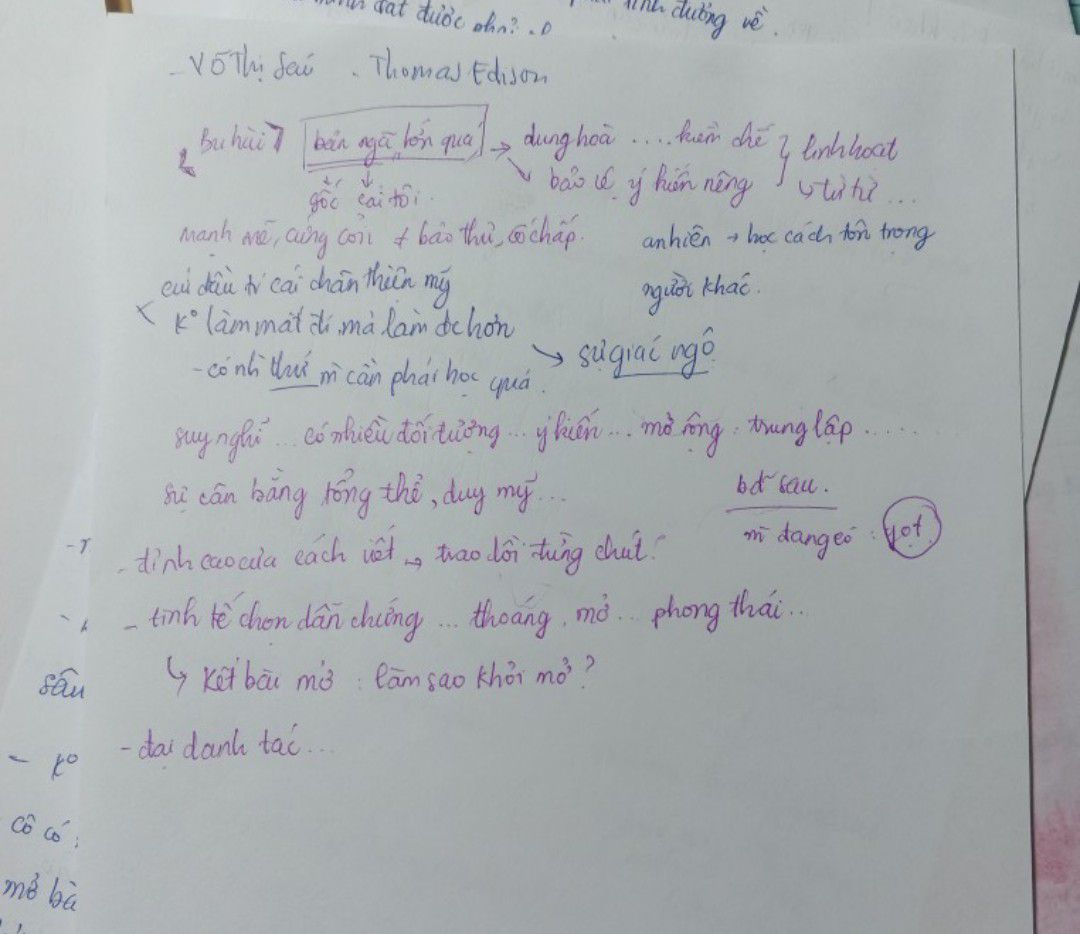 đạt được ph
tinh đường về.
- Võ Thị Sáu . Thomas Edison
bản ngã lớn quá → dung hoà .... kiềm chế } linh hoạt
↓ gốc ↓ cái tôi. ↘ bảo vệ ý kiến riêng ↳ từ từ ...
mạnh mẽ, cứng cỏi ≠ bảo thủ, cố chấp. an nhiên → học cách tôn trọng
người khác.
cái chân thiện mỹ
< K° làm mất đi, mà làm đc hơn
- có nh thứ m cần phải học quá. → sự giác ngộ
suy nghĩ ... có nhiều đối tượng ... ý kiến ... mở rộng . trung lập ......
sự cân bằng tổng thể, duy mỹ ...
bđ sau.
m đang có : gọt
- đỉnh cao của cách viết → trao dồi từng chút.
- tinh tế chọn dẫn chứng ... thoáng . mở .. phong thái ...
↳ Kết bài mở : làm sao khởi mở ?
- đại danh tác ...
sâu
- k°
cô có
mở bà